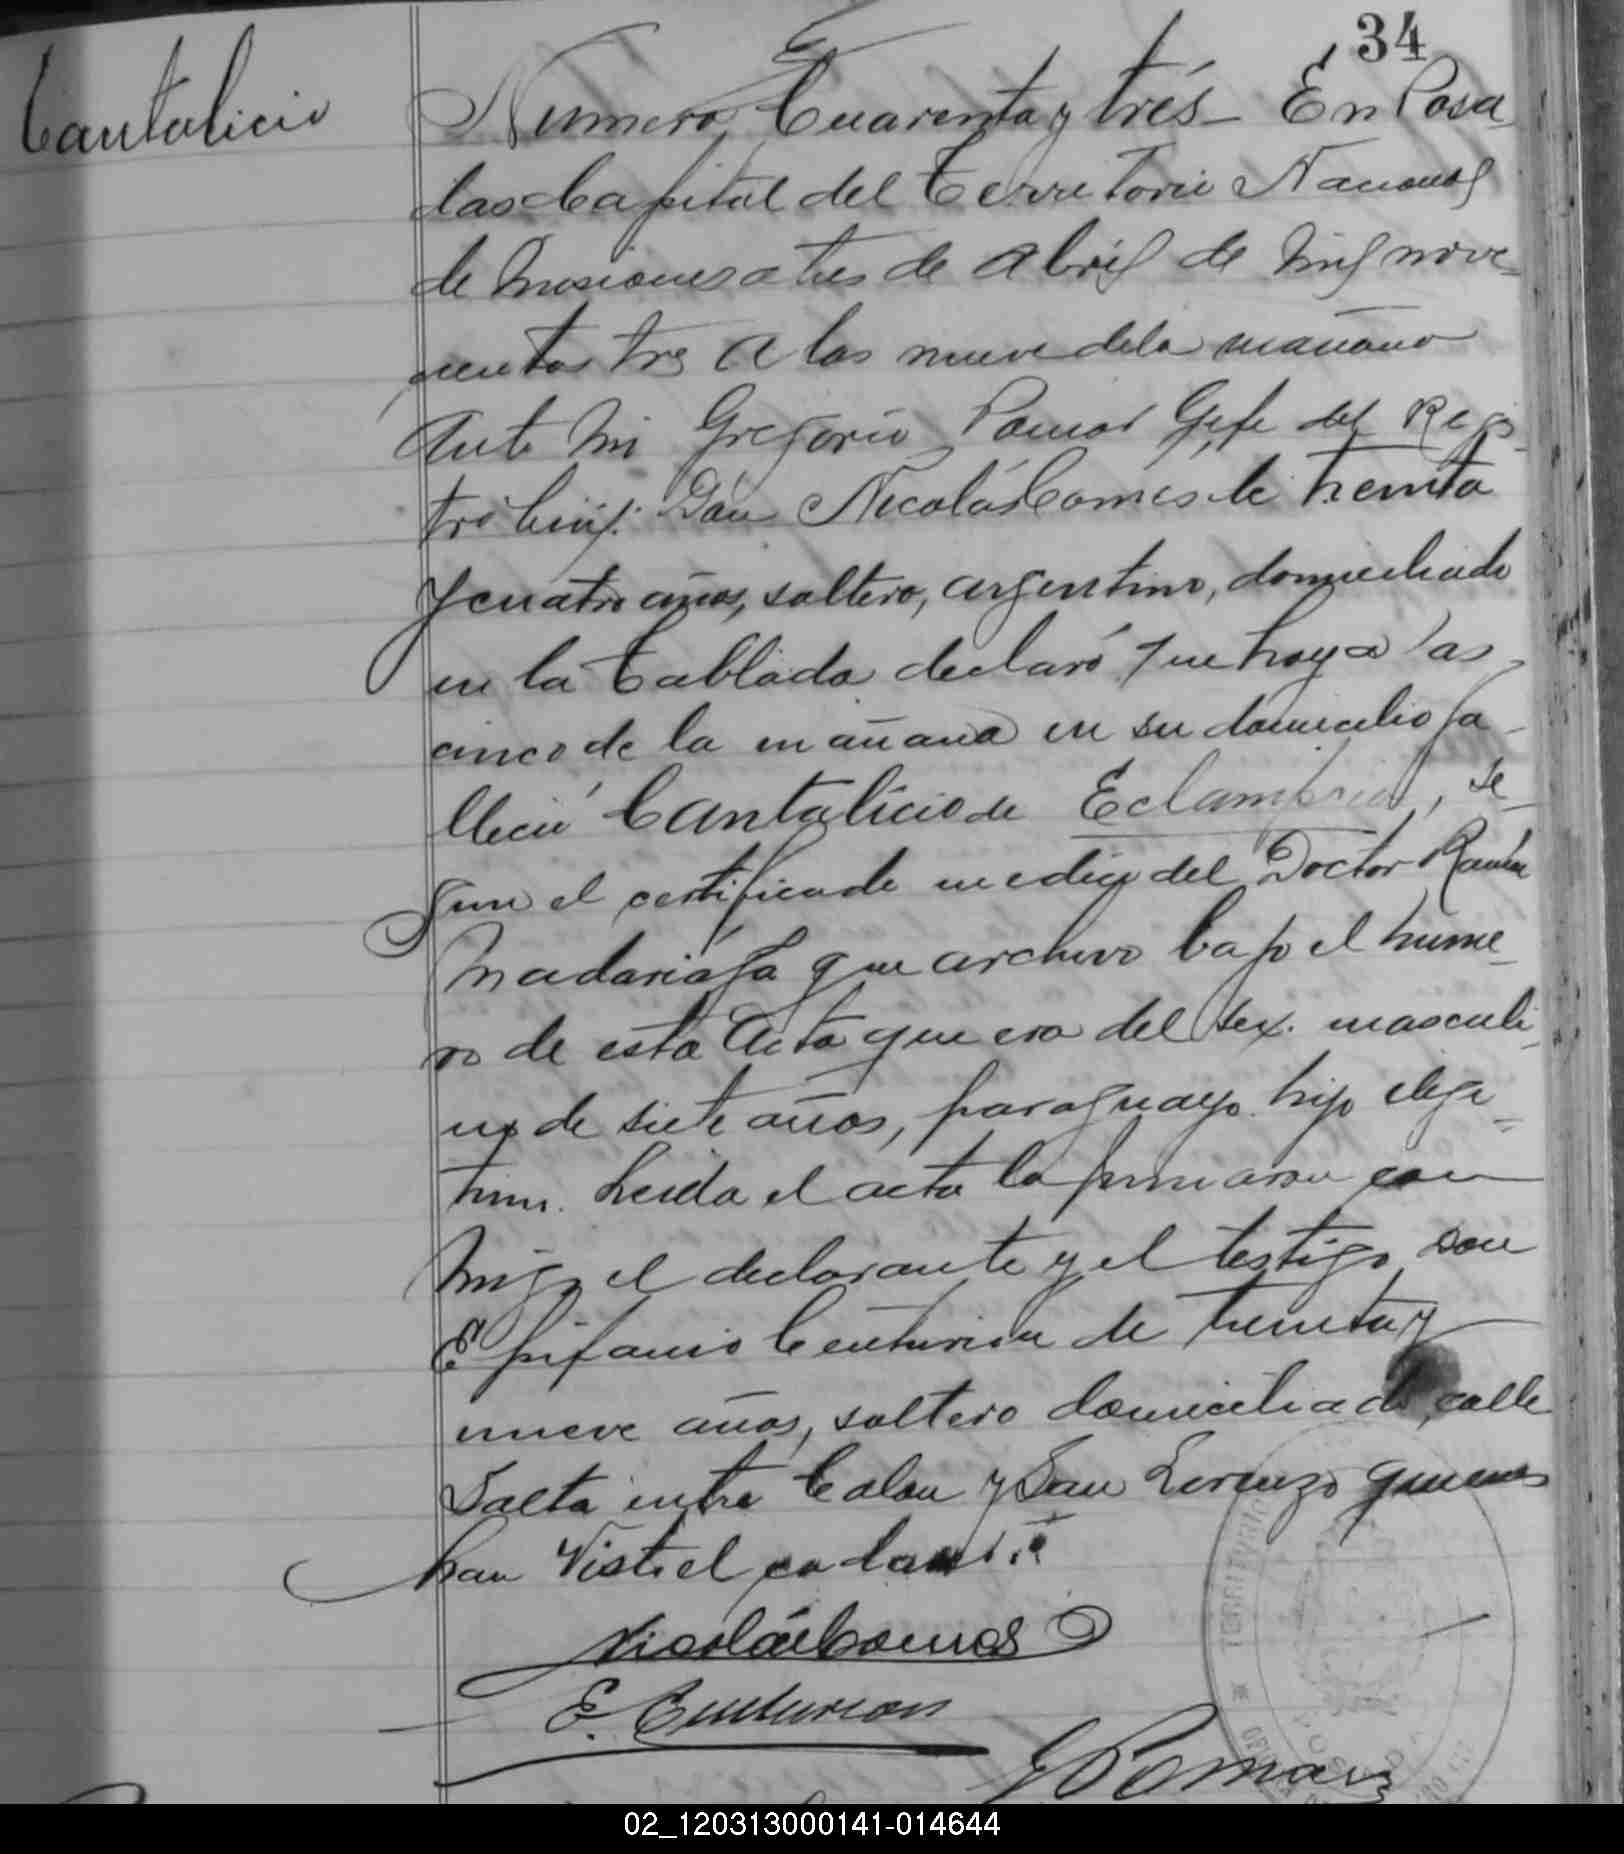 34
Cantalicio
Numero Cuarenta y trés - En Posa
das Capital del Territorio Nacional
de Misiones a tres de Abril de mil nove-
cientos tres a las nueve de la mañana
Ante mi Gregorio Pomar Gefe del Regis-
tro Civil: Don Nicolás Comes de treinta
y cuatro años, soltero, argentino, domiciliado
en la Tablada declaró que hoy a las
cinco de la mañana en su domicilio fa-
lleció Cantalicio de Eclampsia, se-
gun el certificado medico del Doctor Ramón
Madariaga que archivo bajo el núme-
ro de esta Acta que era del sexo masculi-
no de siete años, paraguayo hijo ilegi-
timo. Leida el acta la firmaron con
migo el declarante y el testigo don
Epifanio Centurion de treinta y
nueve años, soltero domiciliado calle
Salta entre Colon y San Lorenzo quienes
han visto el
Nicolás Comes
E. Centurion
G Pomar
TERRITORIO
02_120313000141-014644